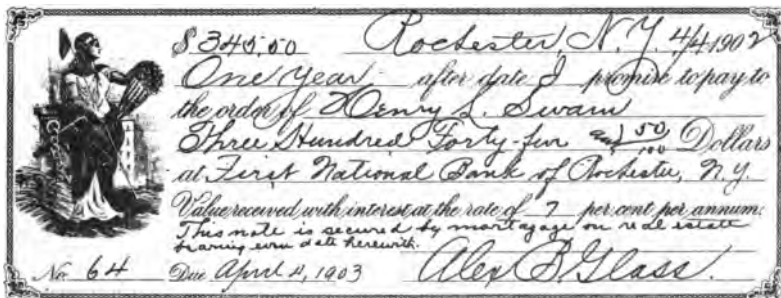 $345.50 Rochester, N.Y. 4/4 1902
One year after date I promise to pay to
the order of Henry L. Swain
Three Hundred Forty-five and 50/100 Dollars
at First National Bank of Rochester, N.Y.
Value received with interest at the rate of 7 per cent per annum.
This note is secured by mortagage on real estate
bearing even date herewith.
No. 64 Due April 4, 1903 Alex B. Glass.